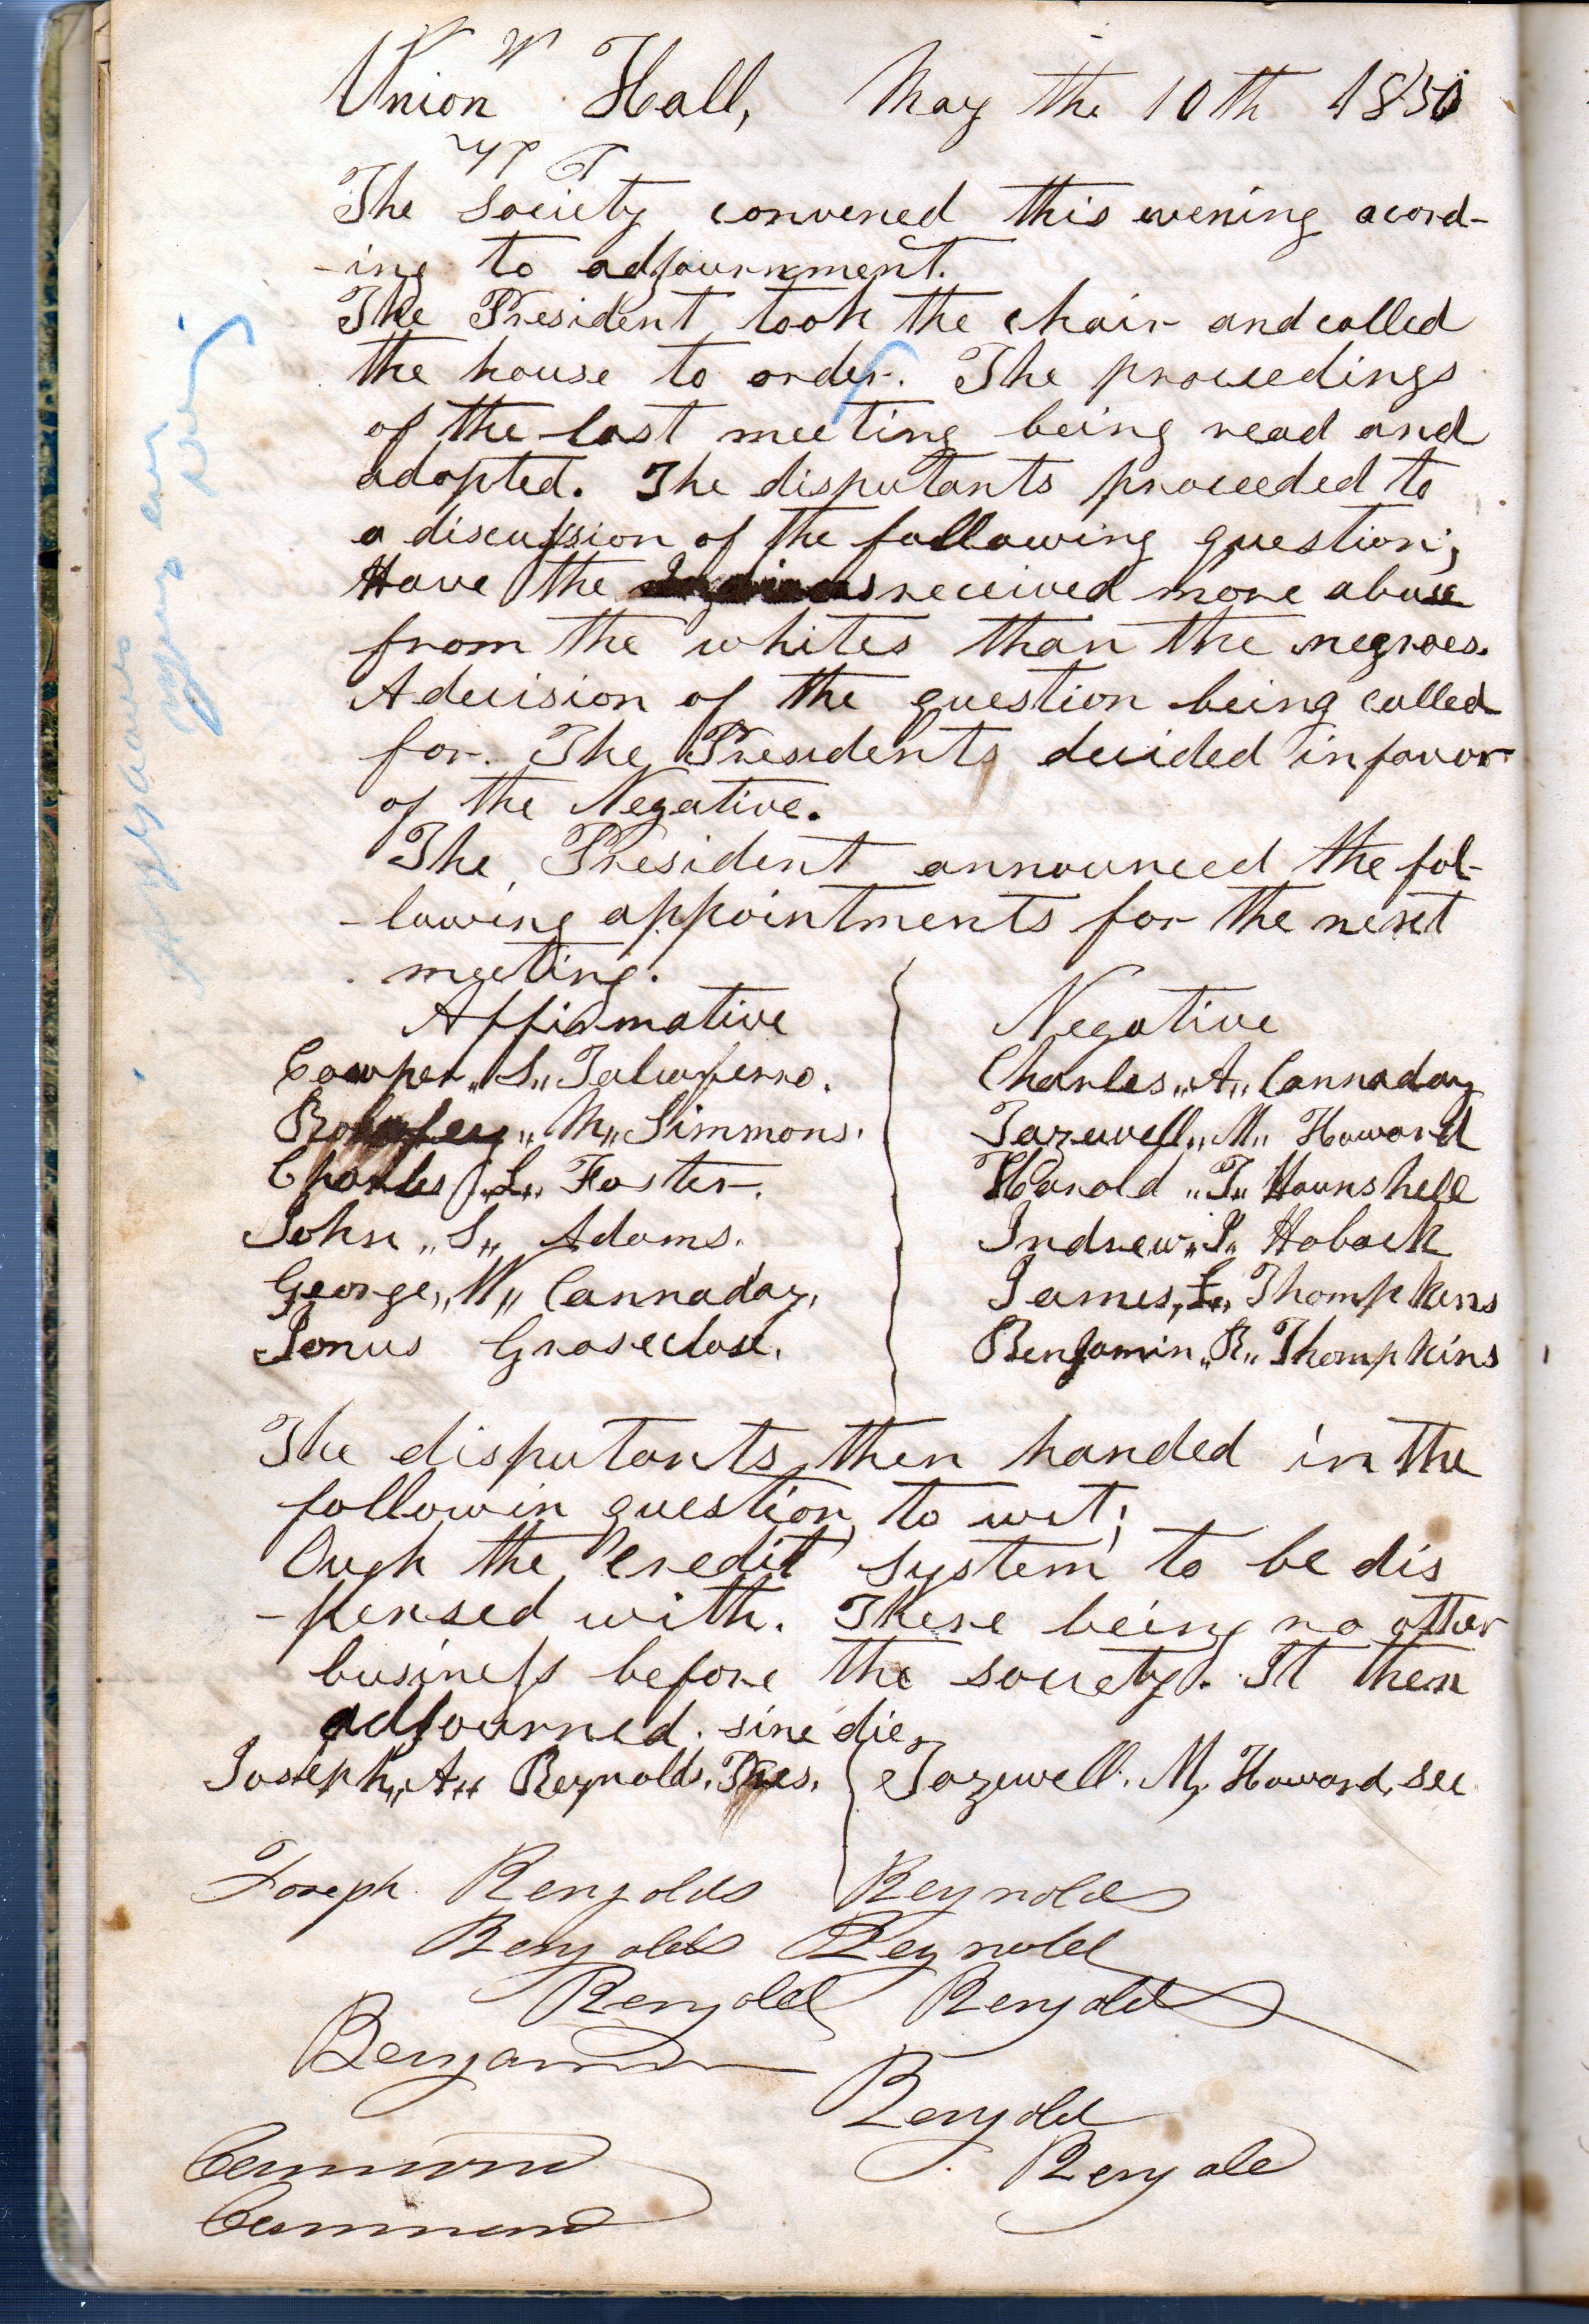 Union Hall, May the 10th 1850
The Society convened this evening acord-
-ing to adjournment.
The President took the chair and called
the house to order. The proceedings
of the last meeting being read and
adopted. The disputants proceeded to
a discussion of the following question;
Have the Indians received more abuse
from the whites than the negroes.
A decision of the question being called
for. The Presidents decided in favor
of the Negative.
The President announced the fol-
-lowing appointments for the next
meeting.
Affirmative
Cowper „S„ Taliaferro.
„M„ Simmons.
Charles „L„ Foster.
John „S„ Adams.
George „W„ Cannaday,
Jonus Groseclose.
Negative
Charles „A„ Cannaday
Tazewell „M„ Howard
Harold „T„ Hounshell
Andrew „P„ Hoback
James „L„ Thompkins
Benjamin „R„ Thompkins
The disputants then handed in the
followin question to wit;
Ough the credit system to be dis
-pensed with. There being no other
business before the society. It then
adjourned. sine die,
Joseph „A„ Reynolds. Pres. Tazewell. M, Howard, sec
Joseph Renyolds Reynolds
Renyolds Reynold
Renyold Renyold
Benjamin
Renyold
Cammond Renyold
Cammond